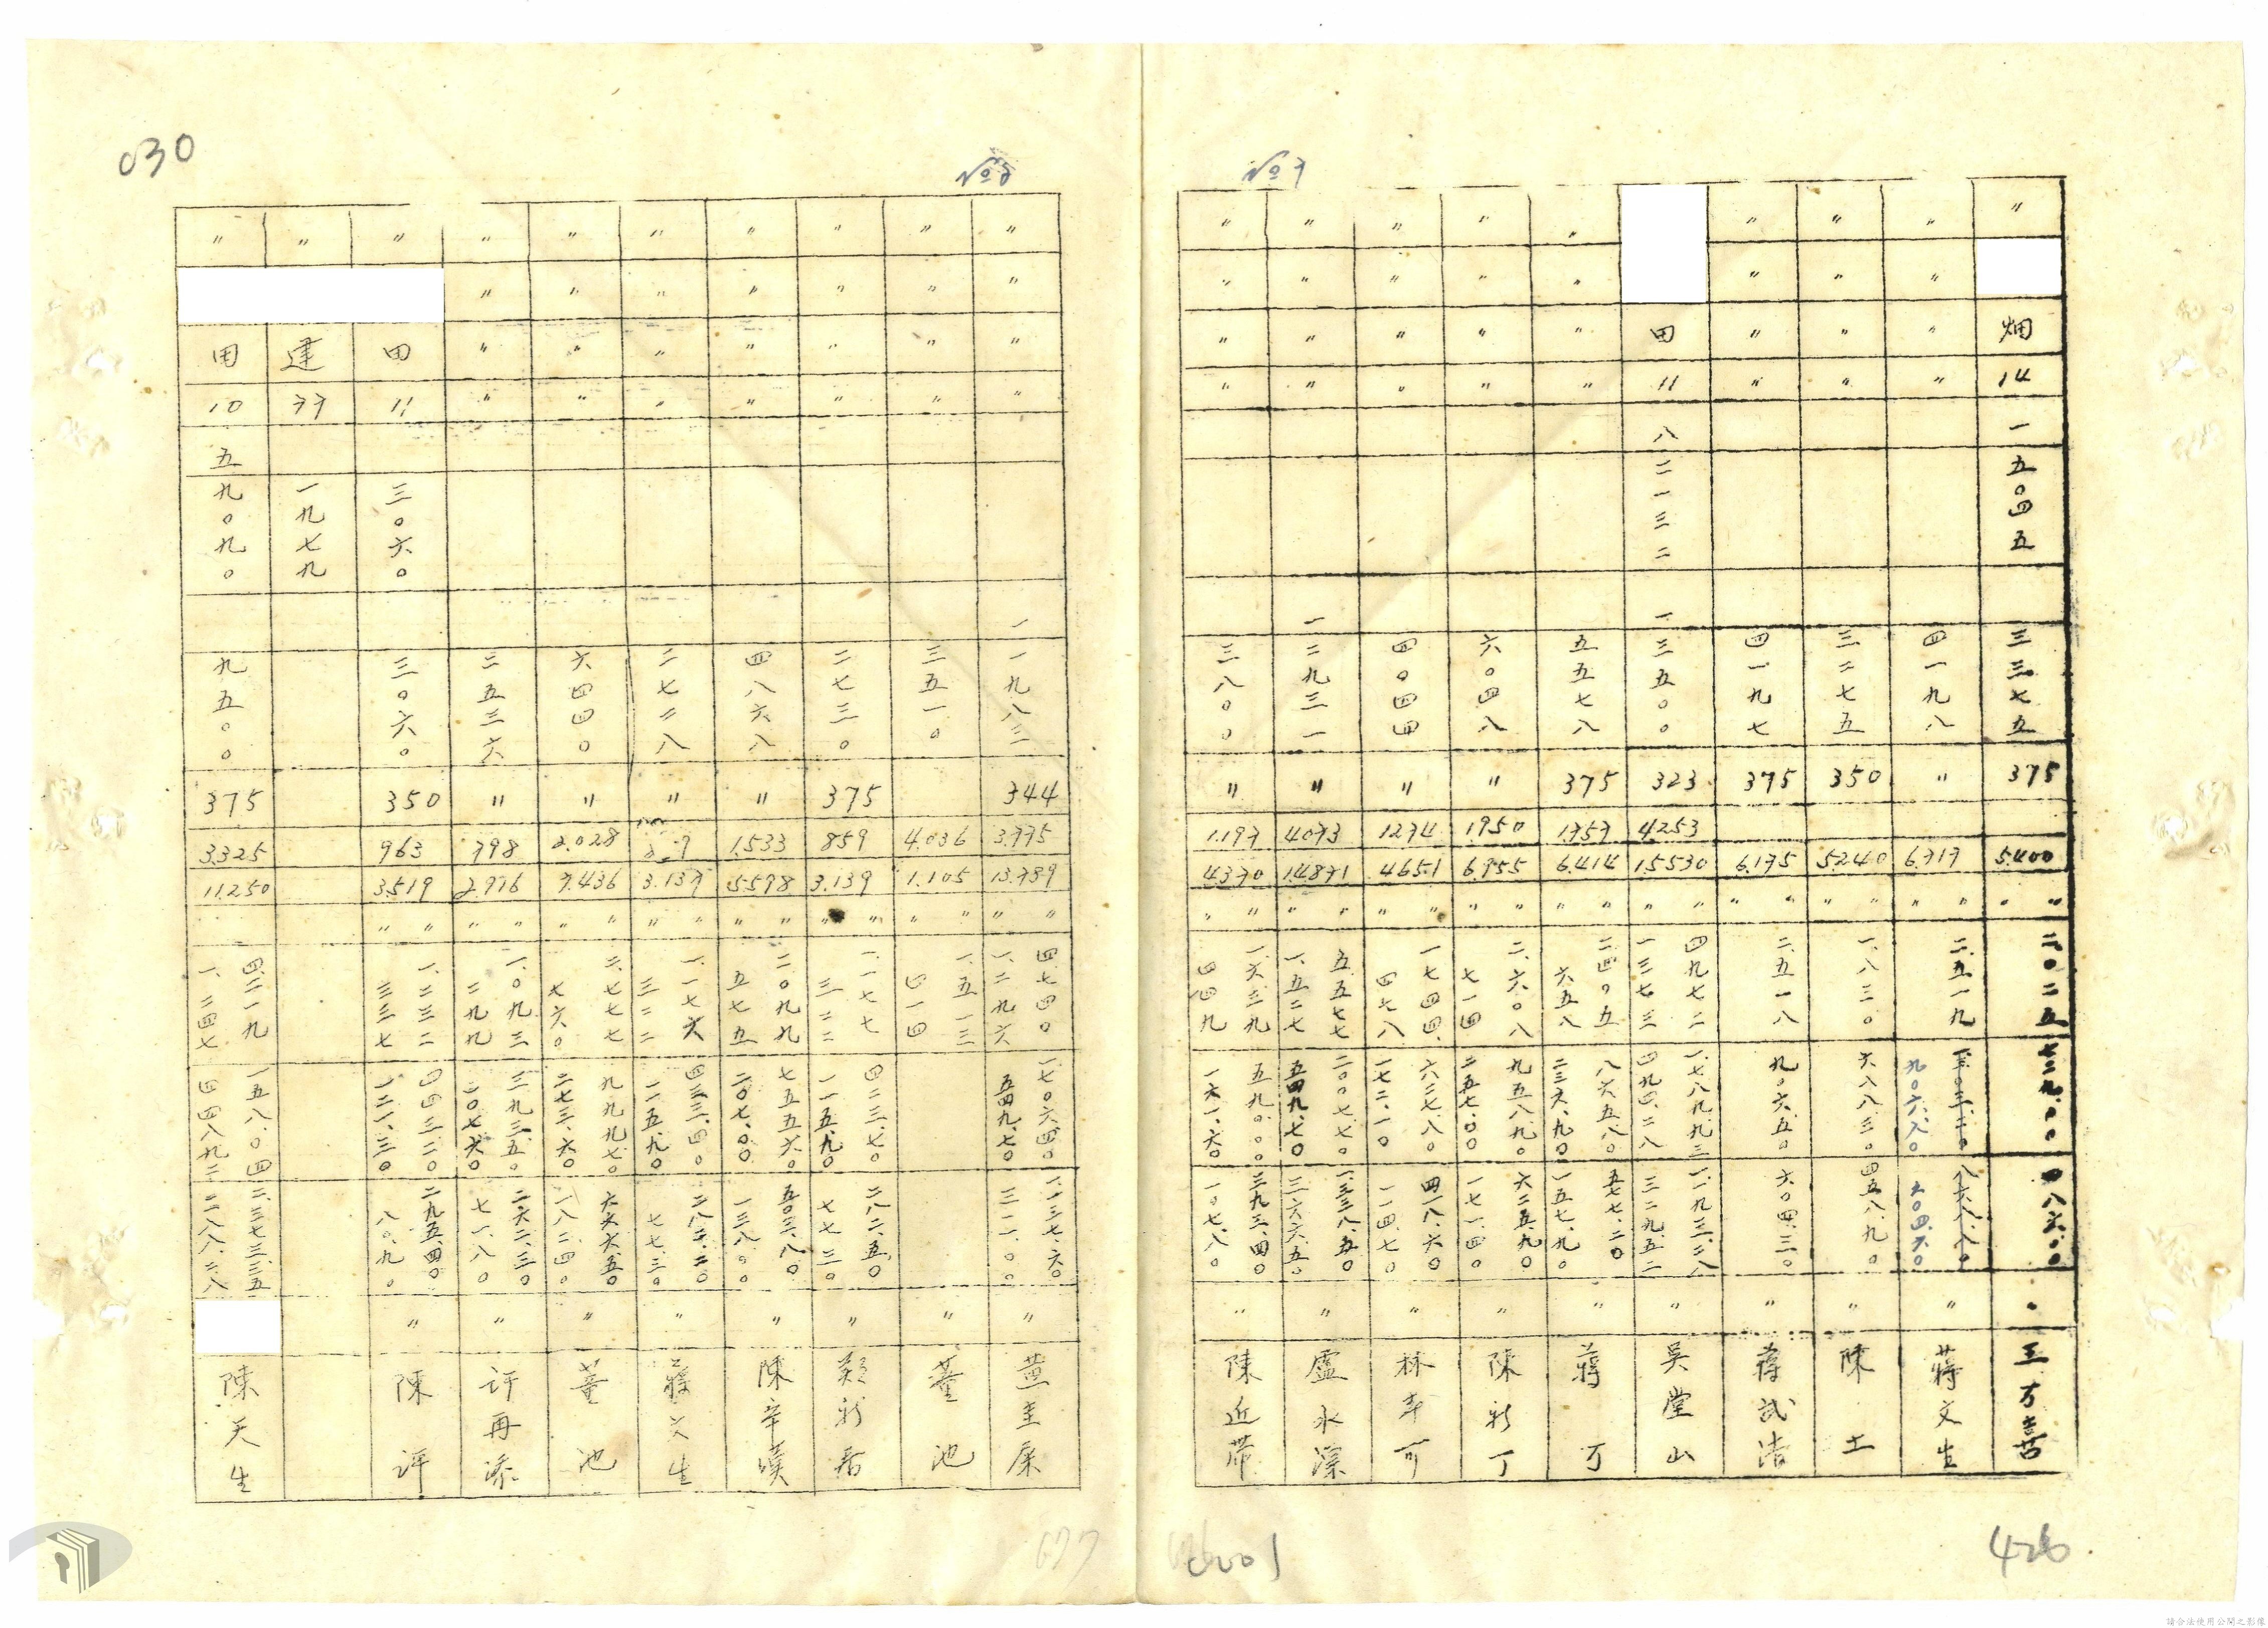 030
№8
№7
〃 畑 14 一 五〇四五 三三七五 375 5.400 〃 〃 二.〇二五 七二九.〇〇 四八六.〇〇 〃 王万喜
〃 〃 〃 〃 四一九八 〃 6.717 〃 〃 二.五一九 九〇六.八〇 六〇四.六〇 〃 蒋文生
〃 〃 〃 〃 三二七五 350 5.240 〃 〃 一.八三〇 六八八.三〇 四五八.九〇 〃 陳土
〃 〃 〃 〃 四一九七 375 6.175 〃 〃 二.五一八 九〇六.五〇 六〇四.三〇 〃 蒋武浩
田 11 八 二一三二 一 三五〇〇 323 4253 15.530 〃 〃 四九七二 一三七三 一.七八九.九三 四九四.二八 一.一九三.二八 三二九.五二 〃 吳堂山
〃 〃 〃 〃 五五七八 375 1.757 6.414 〃 〃 二四〇五 六五八 八六五.八〇 二三六.九〇 五七七.二〇 一五七.九〇 〃 蒋万
〃 〃 〃 〃 六〇四八 〃 1950 6.955 〃 〃 二.六〇八 七一四 九五八.九〇 二五七.〇〇 六二五.九〇 一七一.四〇 〃 陳新丁
〃 〃 〃 〃 四〇四四 〃 1274 4651 〃 〃 一七四四 四七八 六二七.八〇 一七二.一〇 四一八.六〇 一一四.七〇 〃 林幸可
〃 〃 〃 〃 一 二九三一 〃 4073 14.871 〃 〃 五.五七七 一.五二七 二〇〇七.七〇 五四九.七〇 一.三三八.五〇 三六六.五〇 〃 盧永深
〃 〃 〃 〃 三八〇〇 〃 1.197 4370 〃 〃 一.六三九 四四九 五九〇.〇〇 一六一.六〇 三九三.四〇 一〇七.八〇 〃 陳近帶
〃 〃 〃 〃 一 一九八三 344 3.775 13.789 〃 〃 四.七四〇 一.二九六 一七〇六.四〇 五四九.七〇 一.一三七.六〇 三一一.〇〇 〃
〃 〃 〃 〃 三五一〇 4.036 1.105 〃 〃 一.五一三 四一四 〃 董池
〃 〃 〃 〃 二七三〇 375 859 3.139 〃 〃 一.一七七 三二二 四二三.七〇 一一五.九〇 二八二.五〇 七七.三〇 〃
〃 〃 〃 〃 四八六八 〃 1.533 5.598 〃 〃 二〇九九 五七五 七五五.六〇 二〇七.〇〇 五〇三.八〇 一三八.〇〇 〃
〃 〃 〃 〃 二七二八 〃 3.137 〃 〃 一.一七六 三二二 四二三.四〇 一一五.九〇 二八二.二〇 七七.三〇 〃 蒋文生
〃 〃 〃 〃 六四四〇 〃 2.028 7.436 〃 〃 二.七七七 七六〇 九九九.七〇 二七三.六〇 六六六.五〇 一八二.四〇 〃 董池
〃 〃 〃 〃 二五三六 〃 798 2.916 〃 〃 一.〇九三 二九九 三九三.五〇 一〇七.六〇 二六二.三〇 七一.八〇 〃 許再添
〃 田 11 三〇六〇 三〇六〇 350 963 3.519 〃 〃 一.二三二 三三七 四四三.二〇 一二一.三〇 二九五.四〇 八〇.九〇 〃 陳評
〃 建 77 一九七九
〃 田 10 五 九〇九〇 九五〇〇 375 3.325 11.250 四.二一九 一.二四七 一五八.〇四 四四八.九二 二.三七三.三五 二八八.二八 陳天生
677
426
請合法使用公開之影像